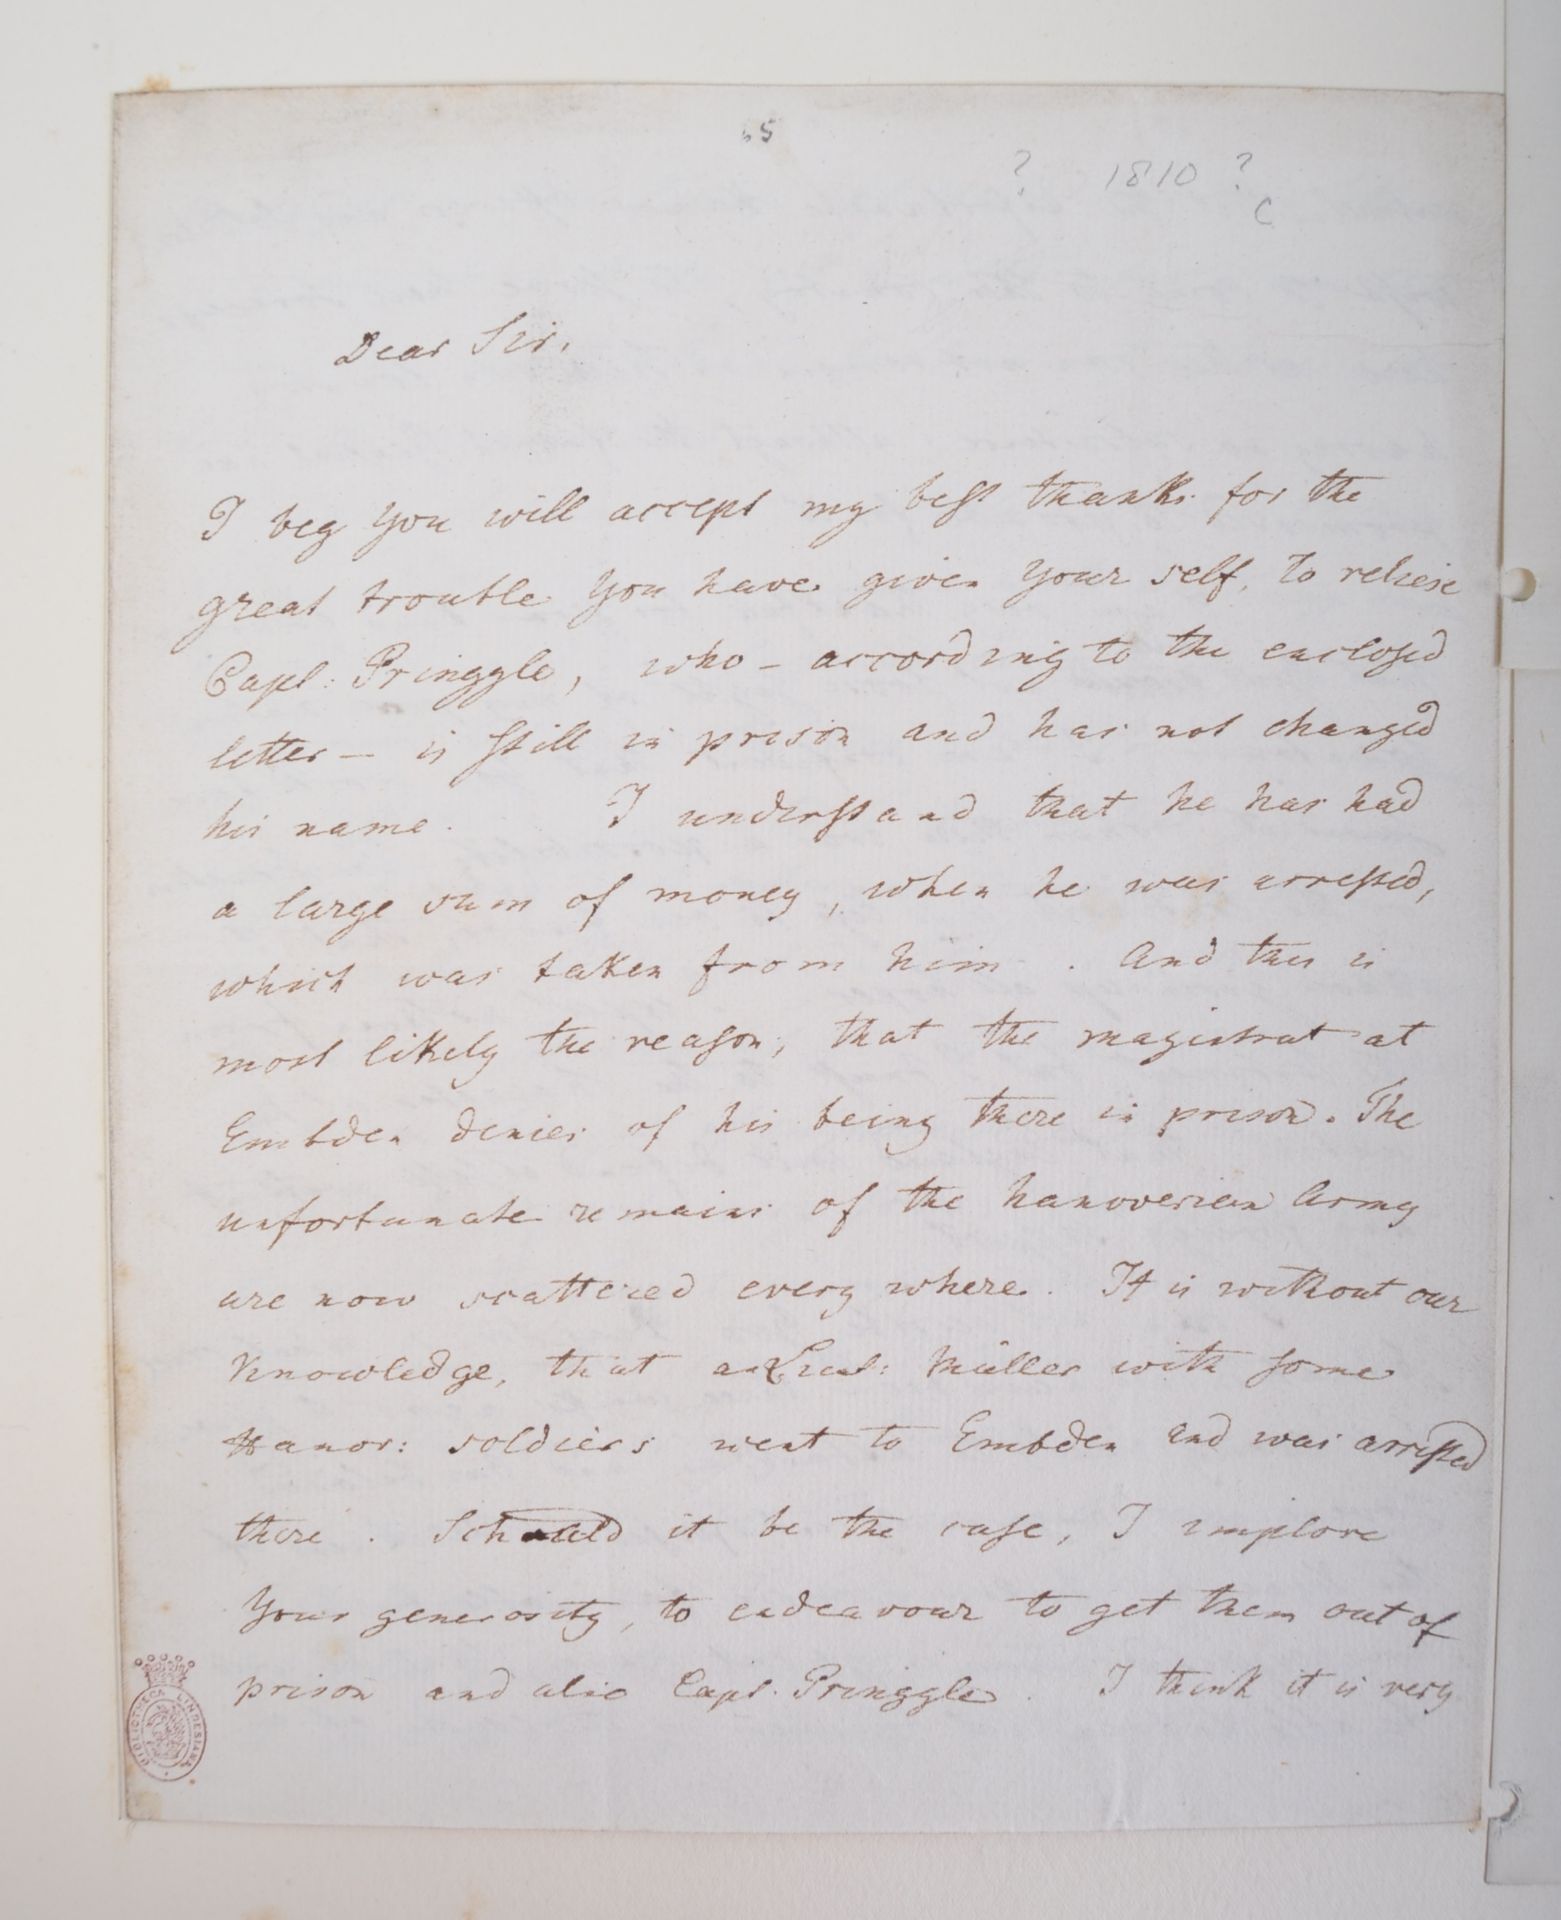 65
? 1810 ?
c
Dear Sir,
I beg You will accept my best thanks for the
great trouble You have given Your self, to relieve
Capt: Pringgle, who – according to the enclosed
letter – is still in prison and has not changed
his name. I understand that he has had
a large sum of money, when he was arrested,
which was taken from him. And this is
most likely the reason, that the magistrat at
Embden denies of his being there in prison. The
unfortunate remains of the hanoverian Army
are now scattered every where. It is without our
Knowledge, that a Lieut: Müller with some
Hanor: soldiers went to Embden and was arrested
there. Schould it be the case, I implore
Your generosity, to endeavour to get them out of
prison and also Capt. Pringgle. I think it is very
BIBLIOTHECA LINDESIANA